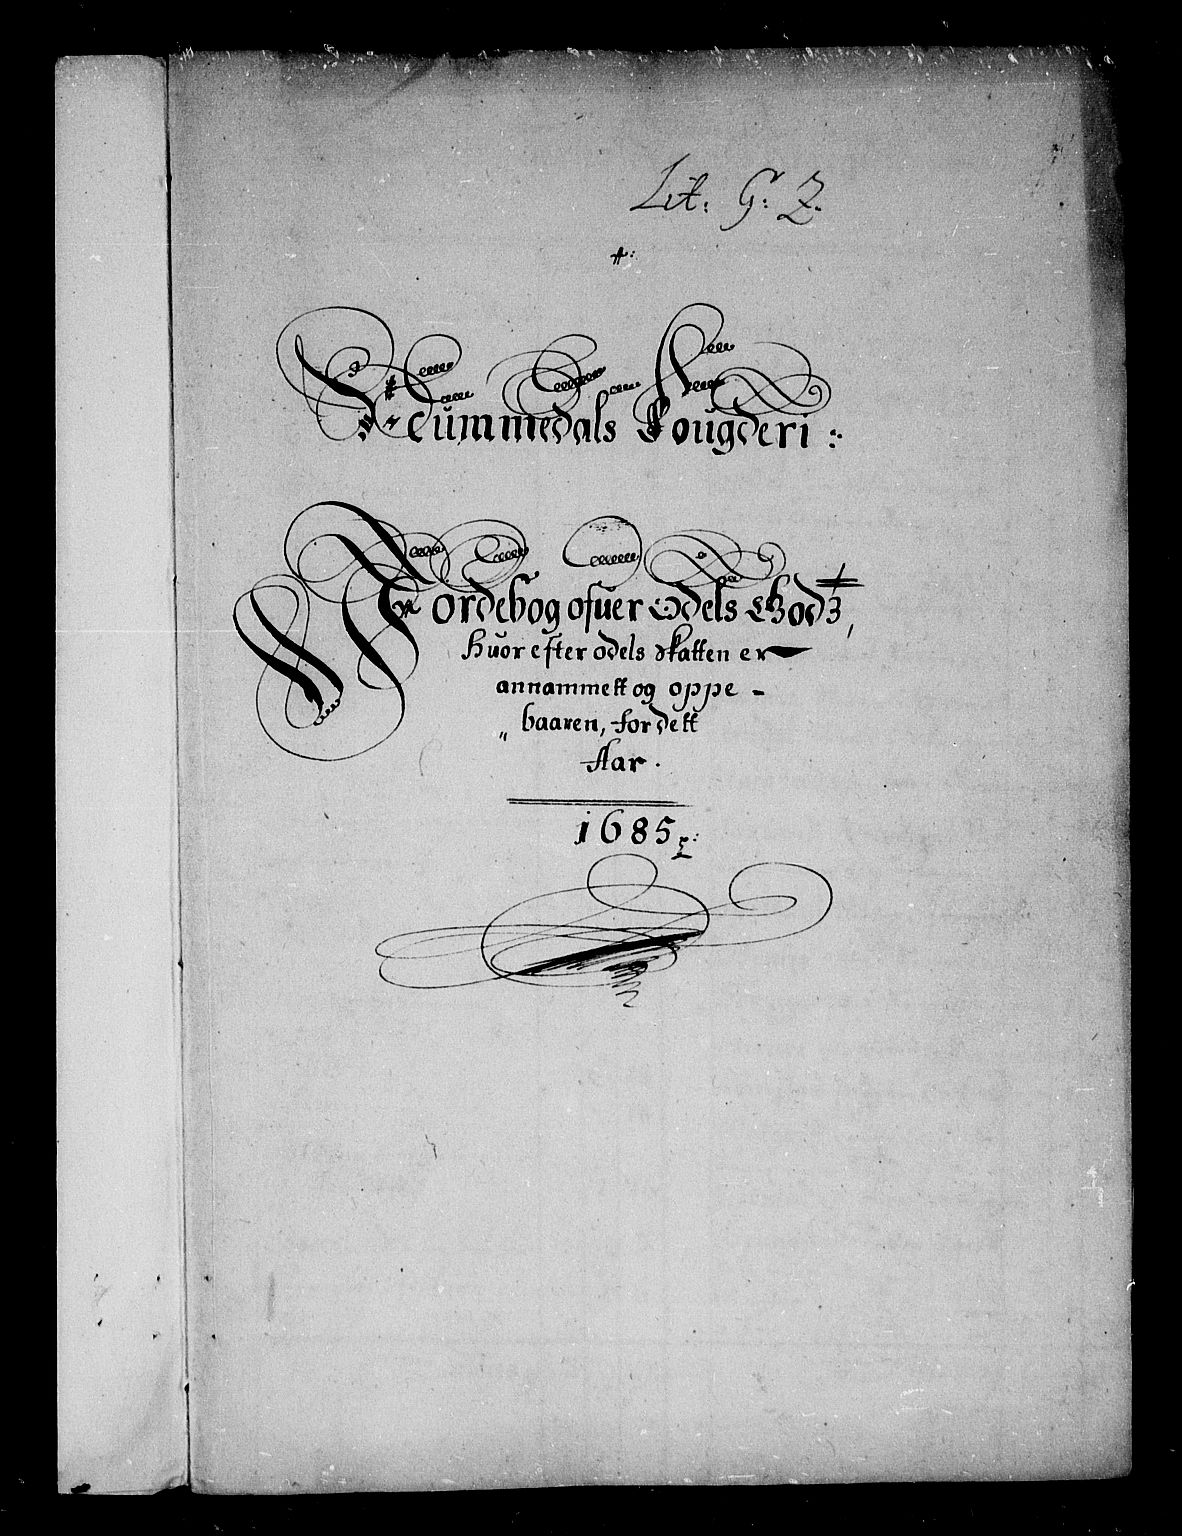 Lit: G: Z.
Nummedals Fougderi :
Jordebog ofuer Odels Godz,
Huor efter odels skatten er
annammett og oppe -
baaren, for dett
Aar.
1685